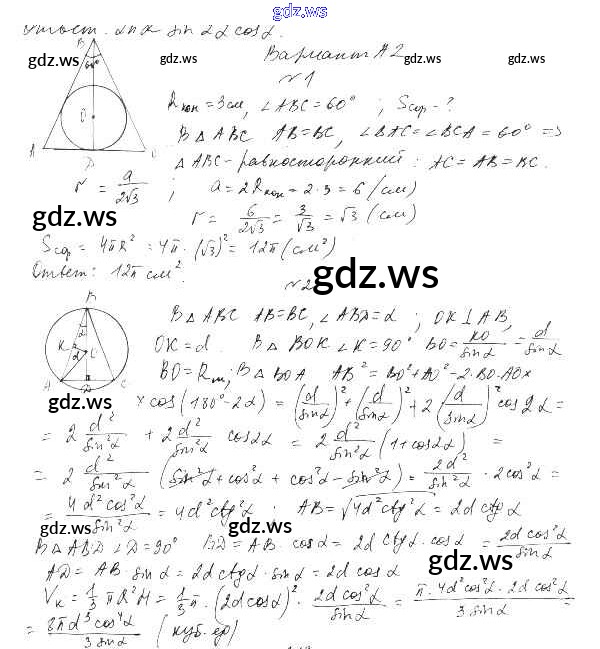 gdz.ws
Ответ. 2πα sin 2α cosα.
Вариант А2
gdz.ws gdz.ws gdz.ws
№1
B
60°
O
A D C
Rкон = 3см, ∠ABC = 60° ; Sсф - ?
В △ ABC AB = BC, ∠BAC = ∠BCA = 60° =>
△ ABC - равносторонний : AC = AB = BC.
r = a/2√3 ; a = 2Rкон = 2·3 = 6 (см)
r = 6/2√3 = 3/√3 = √3 (см)
gdz.ws gdz.ws
Sсф = 4πR² = 4π·(√3)² = 12π (см²)
Ответ: 12π см².
gdz.ws
№2
B
α
K
O
A D
В △ ABC AB = BC, ∠ABD = α ; OK ⊥ AB,
OK = d. В △ BOK ∠K = 90° BO = KO/sinα = d/sinα
BO = Rш; В △ BOA AB² = BO² + AO² - 2·BO·AO×
gdz.ws gdz.ws
×cos(180° - 2α) = (d/sinα)² + (d/sinα)² + 2(d/sinα)² cos2α =
= 2 d²/sin²α + 2 d²/sin²α cos2α = 2 d²/sin²α (1 + cos2α) =
= 2 d²/sin²α (sin²α + cos²α + cos²α - sin²α) = 2d²/sin²α · 2cos²α =
= 4d²cos²α/sin²α = 4d²ctg²α ; AB = √4d²ctg²α = 2d ctgα
gdz.ws gdz.ws
В △ ABD ∠D = 90° BD = AB cosα = 2d ctgα·cosα = 2d cos²α/sinα
gdz.ws
AD = AB sinα = 2d ctgα·sinα = 2d cosα
Vк = 1/3 πR²H = 1/3 π·(2d cosα)² · 2d cos²α/sinα = π·4d²cos²α·2d cos²α/3 sinα =
= 8πd³cos⁴α/3 sinα (куб. ед)
gdz.ws
gdz.ws